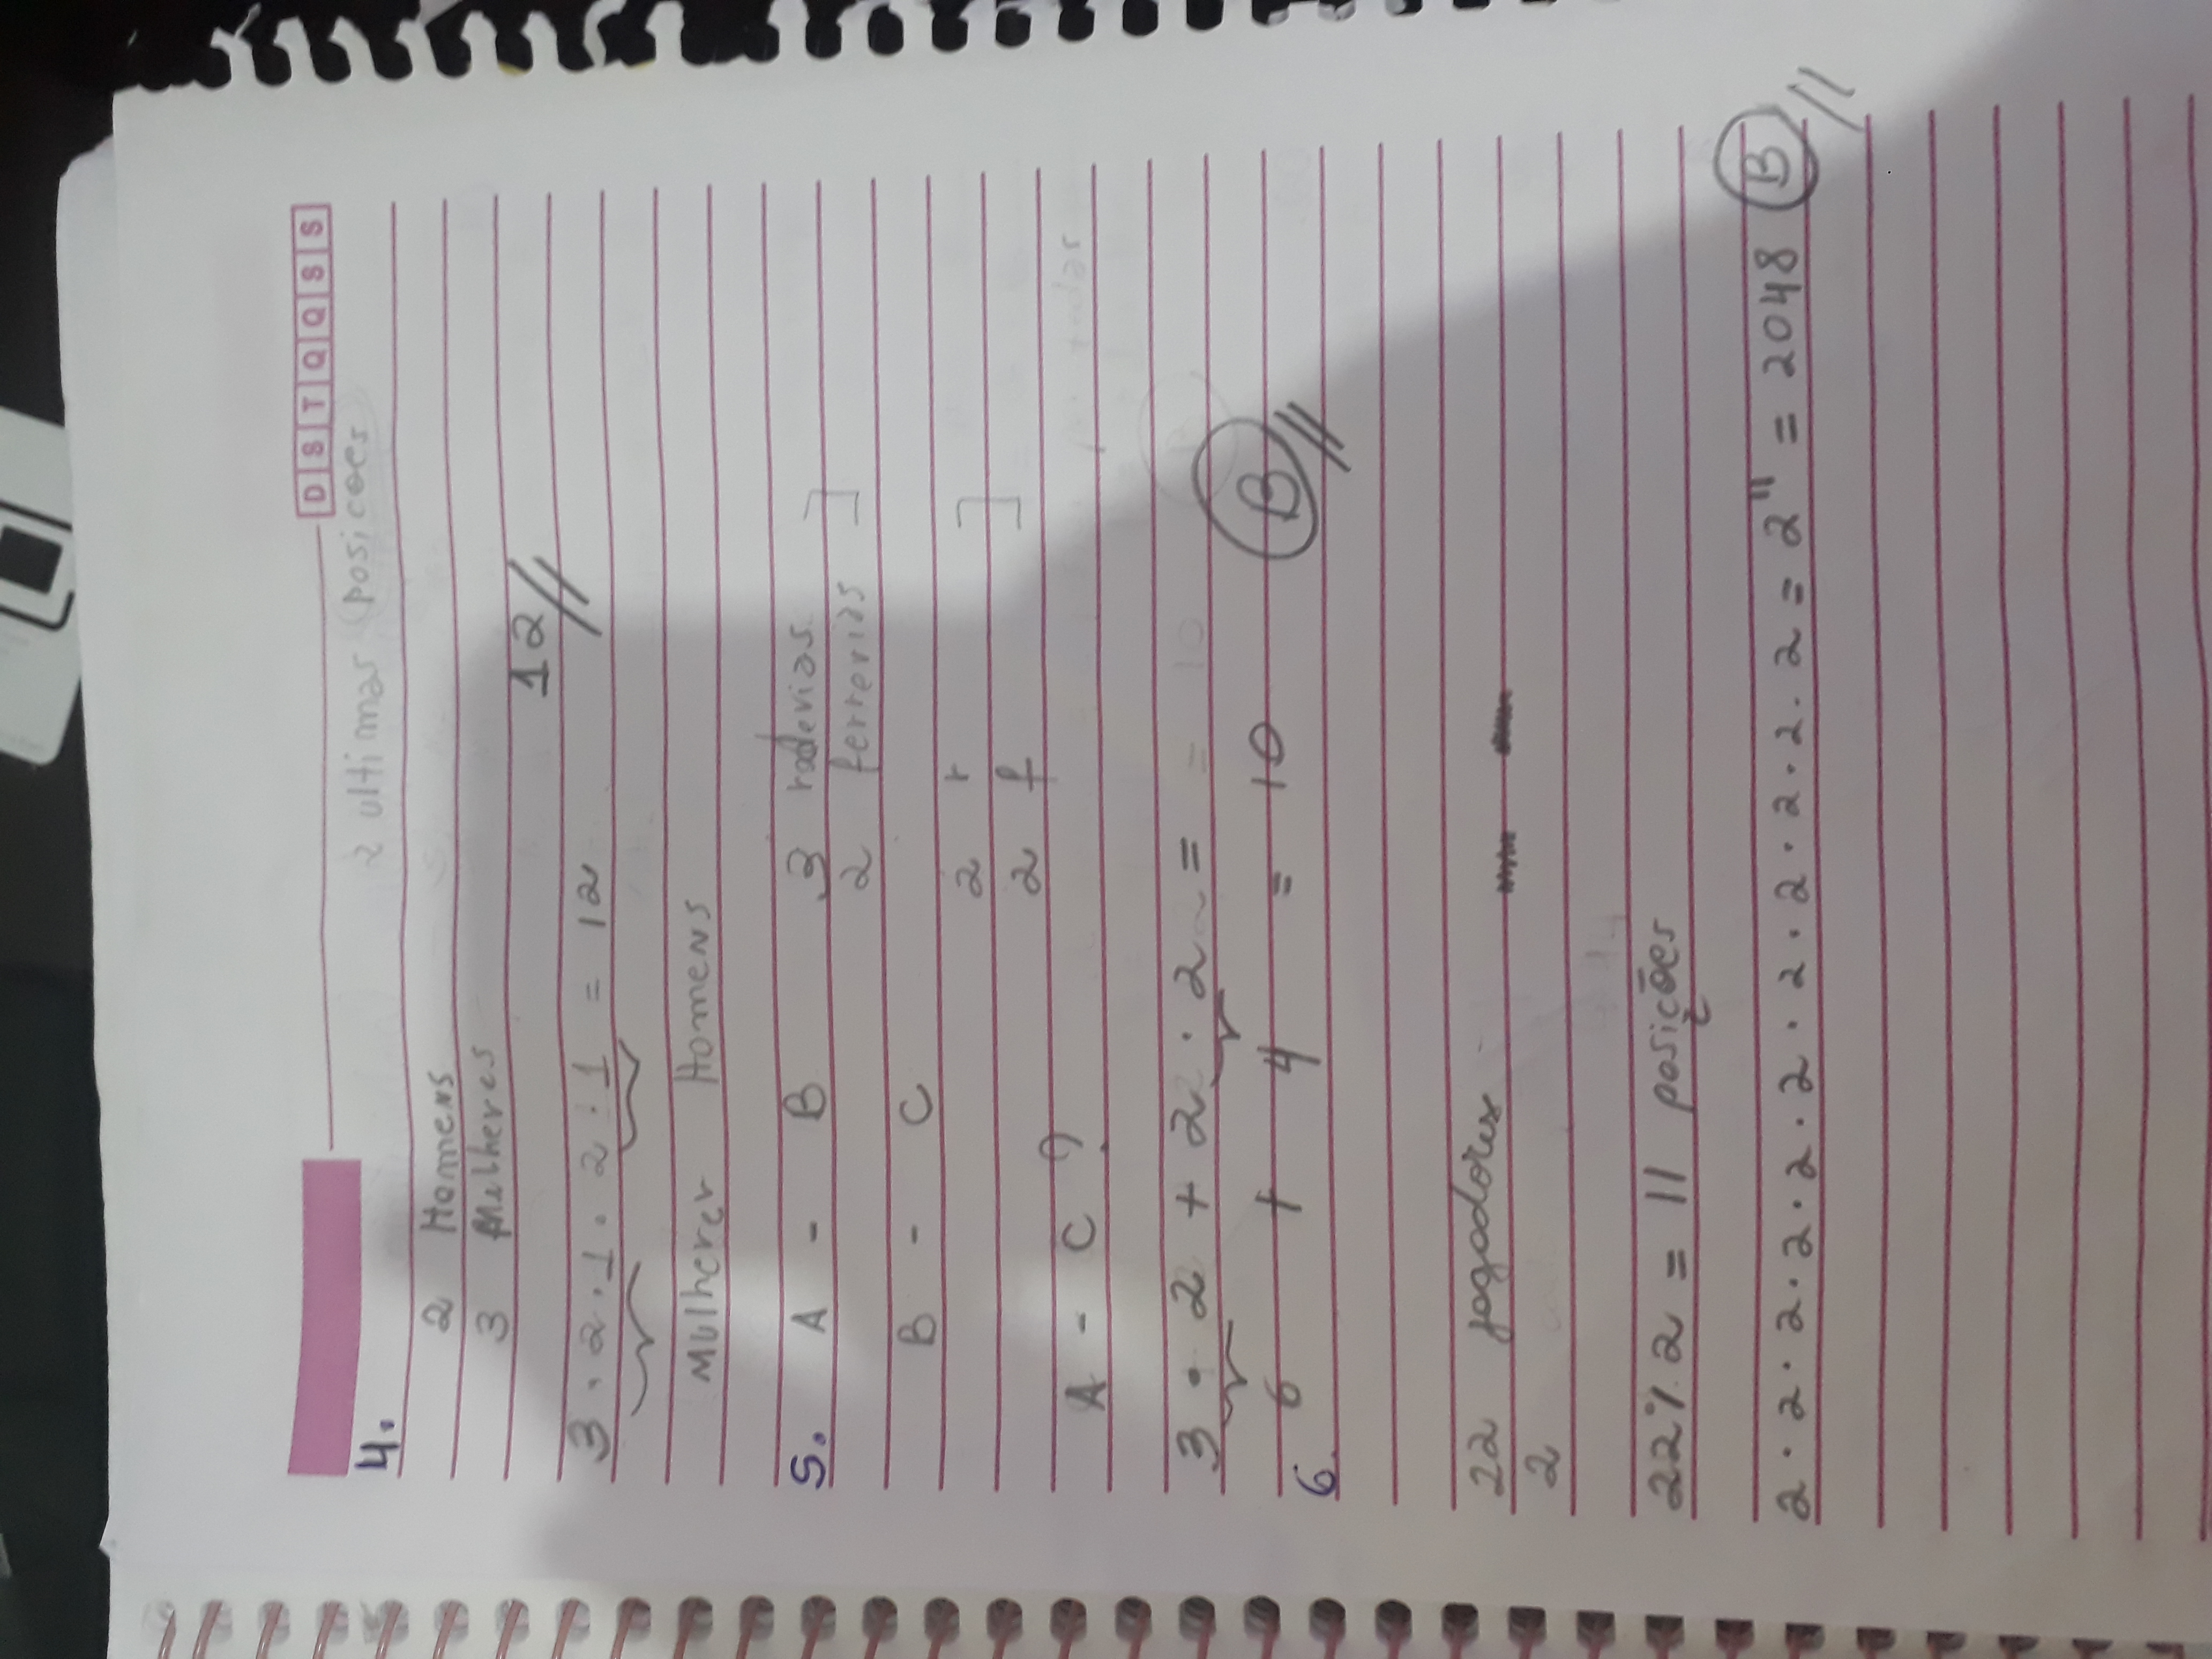 D S T Q Q S S
4. 2 ultimas posicoes
2 Homens
3 Mulheres
12//
3 . 2 . 1 . 2 . 1 = 12
Mulherer Homens
5. A - B 3 rodovias
2 ferrovias
B - C
2 r
2 f
A - C ?
3 . 2 + 2 . 2 = = 10
6 + 4 = 10 B//
6.
22 jogadores
2
22% 2 = 11 posições
2 . 2 . 2 . 2 . 2 . 2 . 2 . 2 . 2 . 2 . 2 = 2¹¹ = 2048 B//